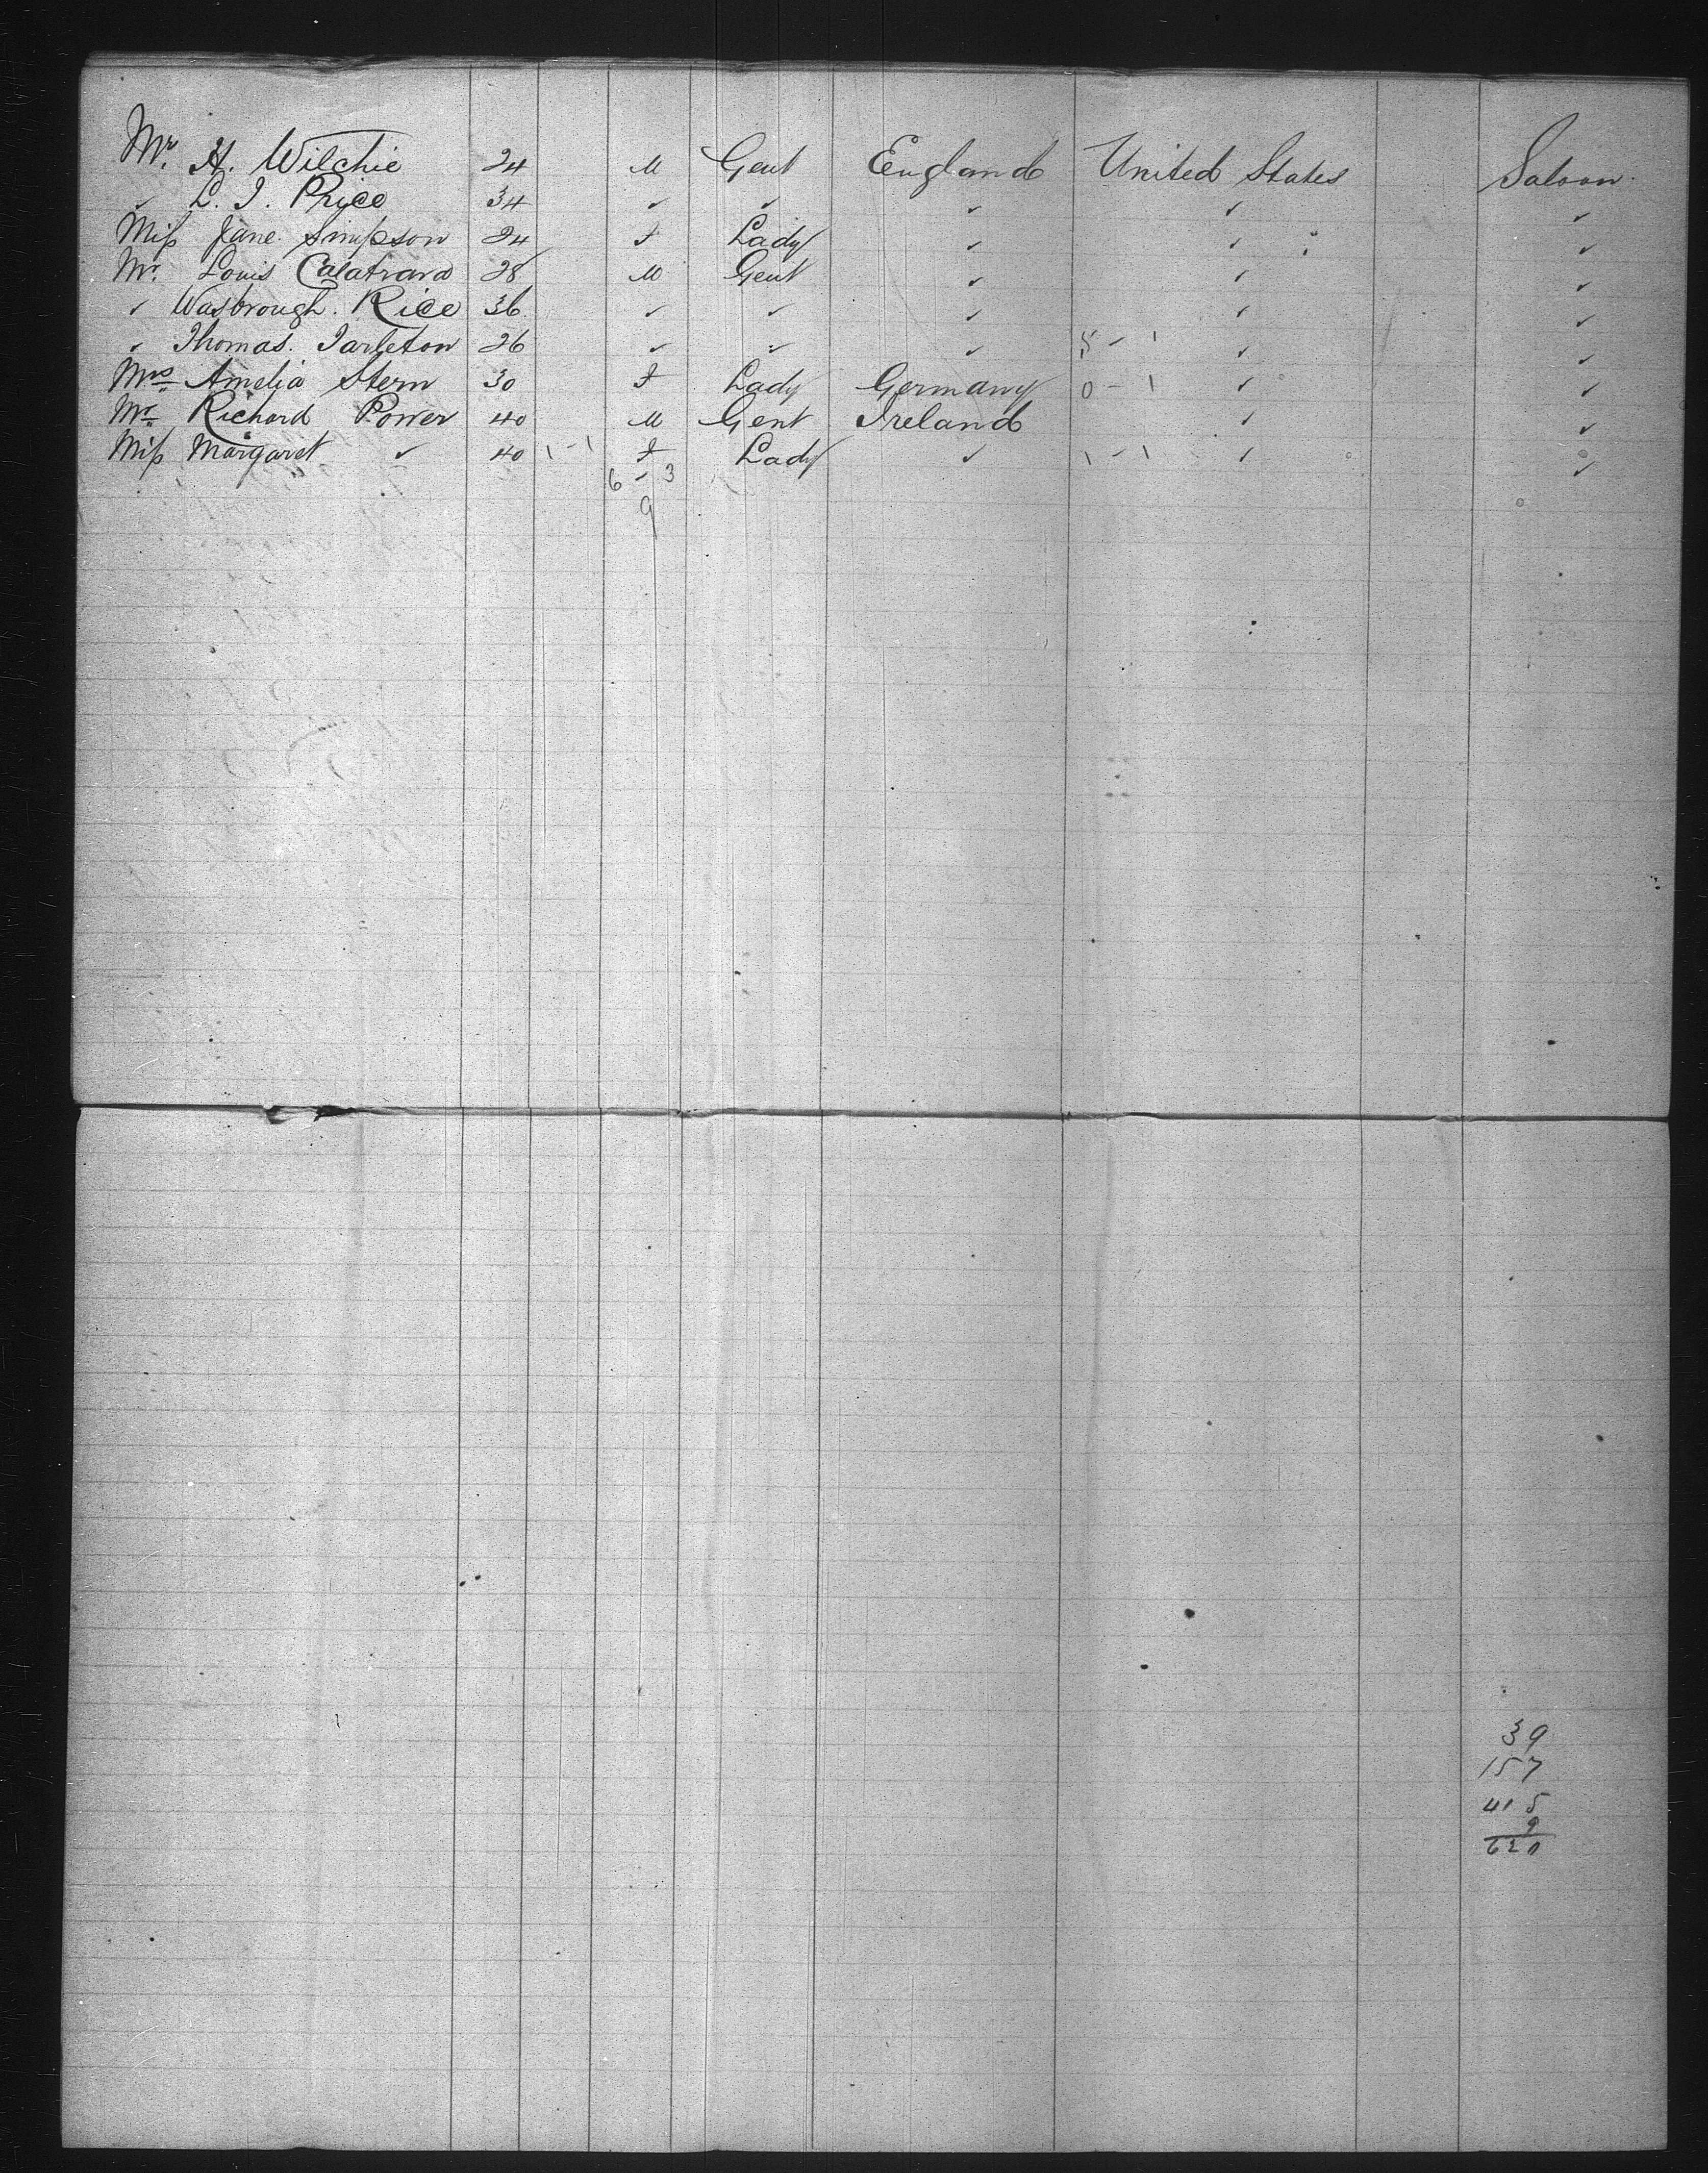 Mr. H. Wilchie 24 M Gent England United States Saloon.
✓ L. J. Price 34 ✓ ✓ ✓ ✓ ✓
Miss Jane Simpson 24 F Lady ✓ ✓ ✓
Mr. Louis Calatrava 28 M Gent ✓ ✓ ✓
✓ Wasbrough Rice 36 ✓ ✓ ✓ ✓ ✓
✓ Thomas Tarleton 26 ✓ ✓ ✓ 5 - 1 ✓ ✓
Mrs Amelia Stern 30 F Lady Germany 0 - 1 ✓ ✓
Mr Richard Power 40 M Gent Ireland ✓ ✓
Miss Margaret ✓ 40 1 - 1 F Lady ✓ 1 - 1 ✓ ✓
6 - 3
9
39
157
415
9
620